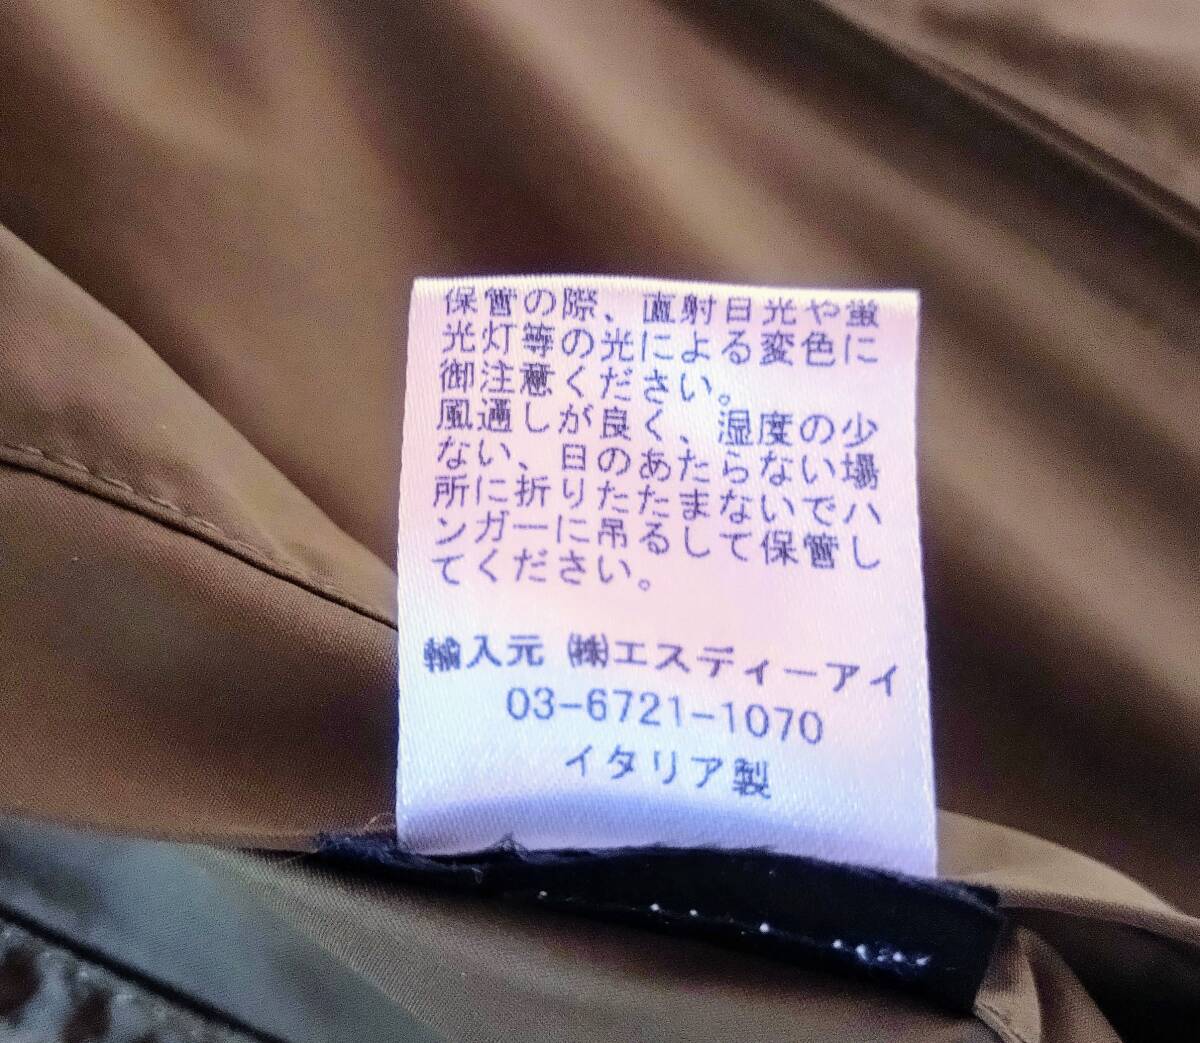 保管の際、直射日光や蛍
光灯等の光による変色に
御注意ください。
風通しが良く、湿度の少
ない、日のあたらない場
所に折りたたまないでハ
ンガーに吊るして保管し
てください。
輸入元 ㈱エスディーアイ
03-6721-1070
イタリア製